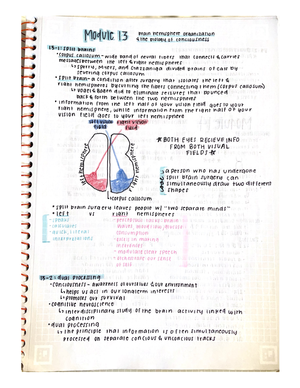 Module 13
Brain Hemisphere Organization
& the Biology of Consciousness
13-1: Split Brains
• corpus callosum - wide band of neural fibers that connect & carries
messages between the left & right hemispheres
↳ Sperry, Myers, and Gazzaniga divided brains of cats by
severing corpus callosum
• split brain - a condition after surgery that isolates the left &
right hemispheres by cutting the fibers connecting them (corpus callosum)
back & forth between the two hemispheres
• information from the left half of your vision field goes to your
right hemisphere, while information from the right half of your
vision field goes to your left hemisphere
left visual field
right visual field
* BOTH EYES RECIEVE INFO
FROM BOTH VISUAL
FIELDS *
left hemisphere
right hemisphere
a person who has undergone
split brain surgery can
simultaneously draw two different
shapes
corpus callosum
• split brain surgery leaves people w/ "two separate minds"
• left vs right hemispheres
13-2: Dual Processing
• consciousness - awareness of ourselves & our environment
↳ helps us act in our longterm interests
↳ promotes our survival
• cognitive neuroscience
↳ interdisciplinary study of the brain activity linked with
cognition
• dual processing
↳ the principle that information is often simultaneously
processed on separate concious & unconcious tracks